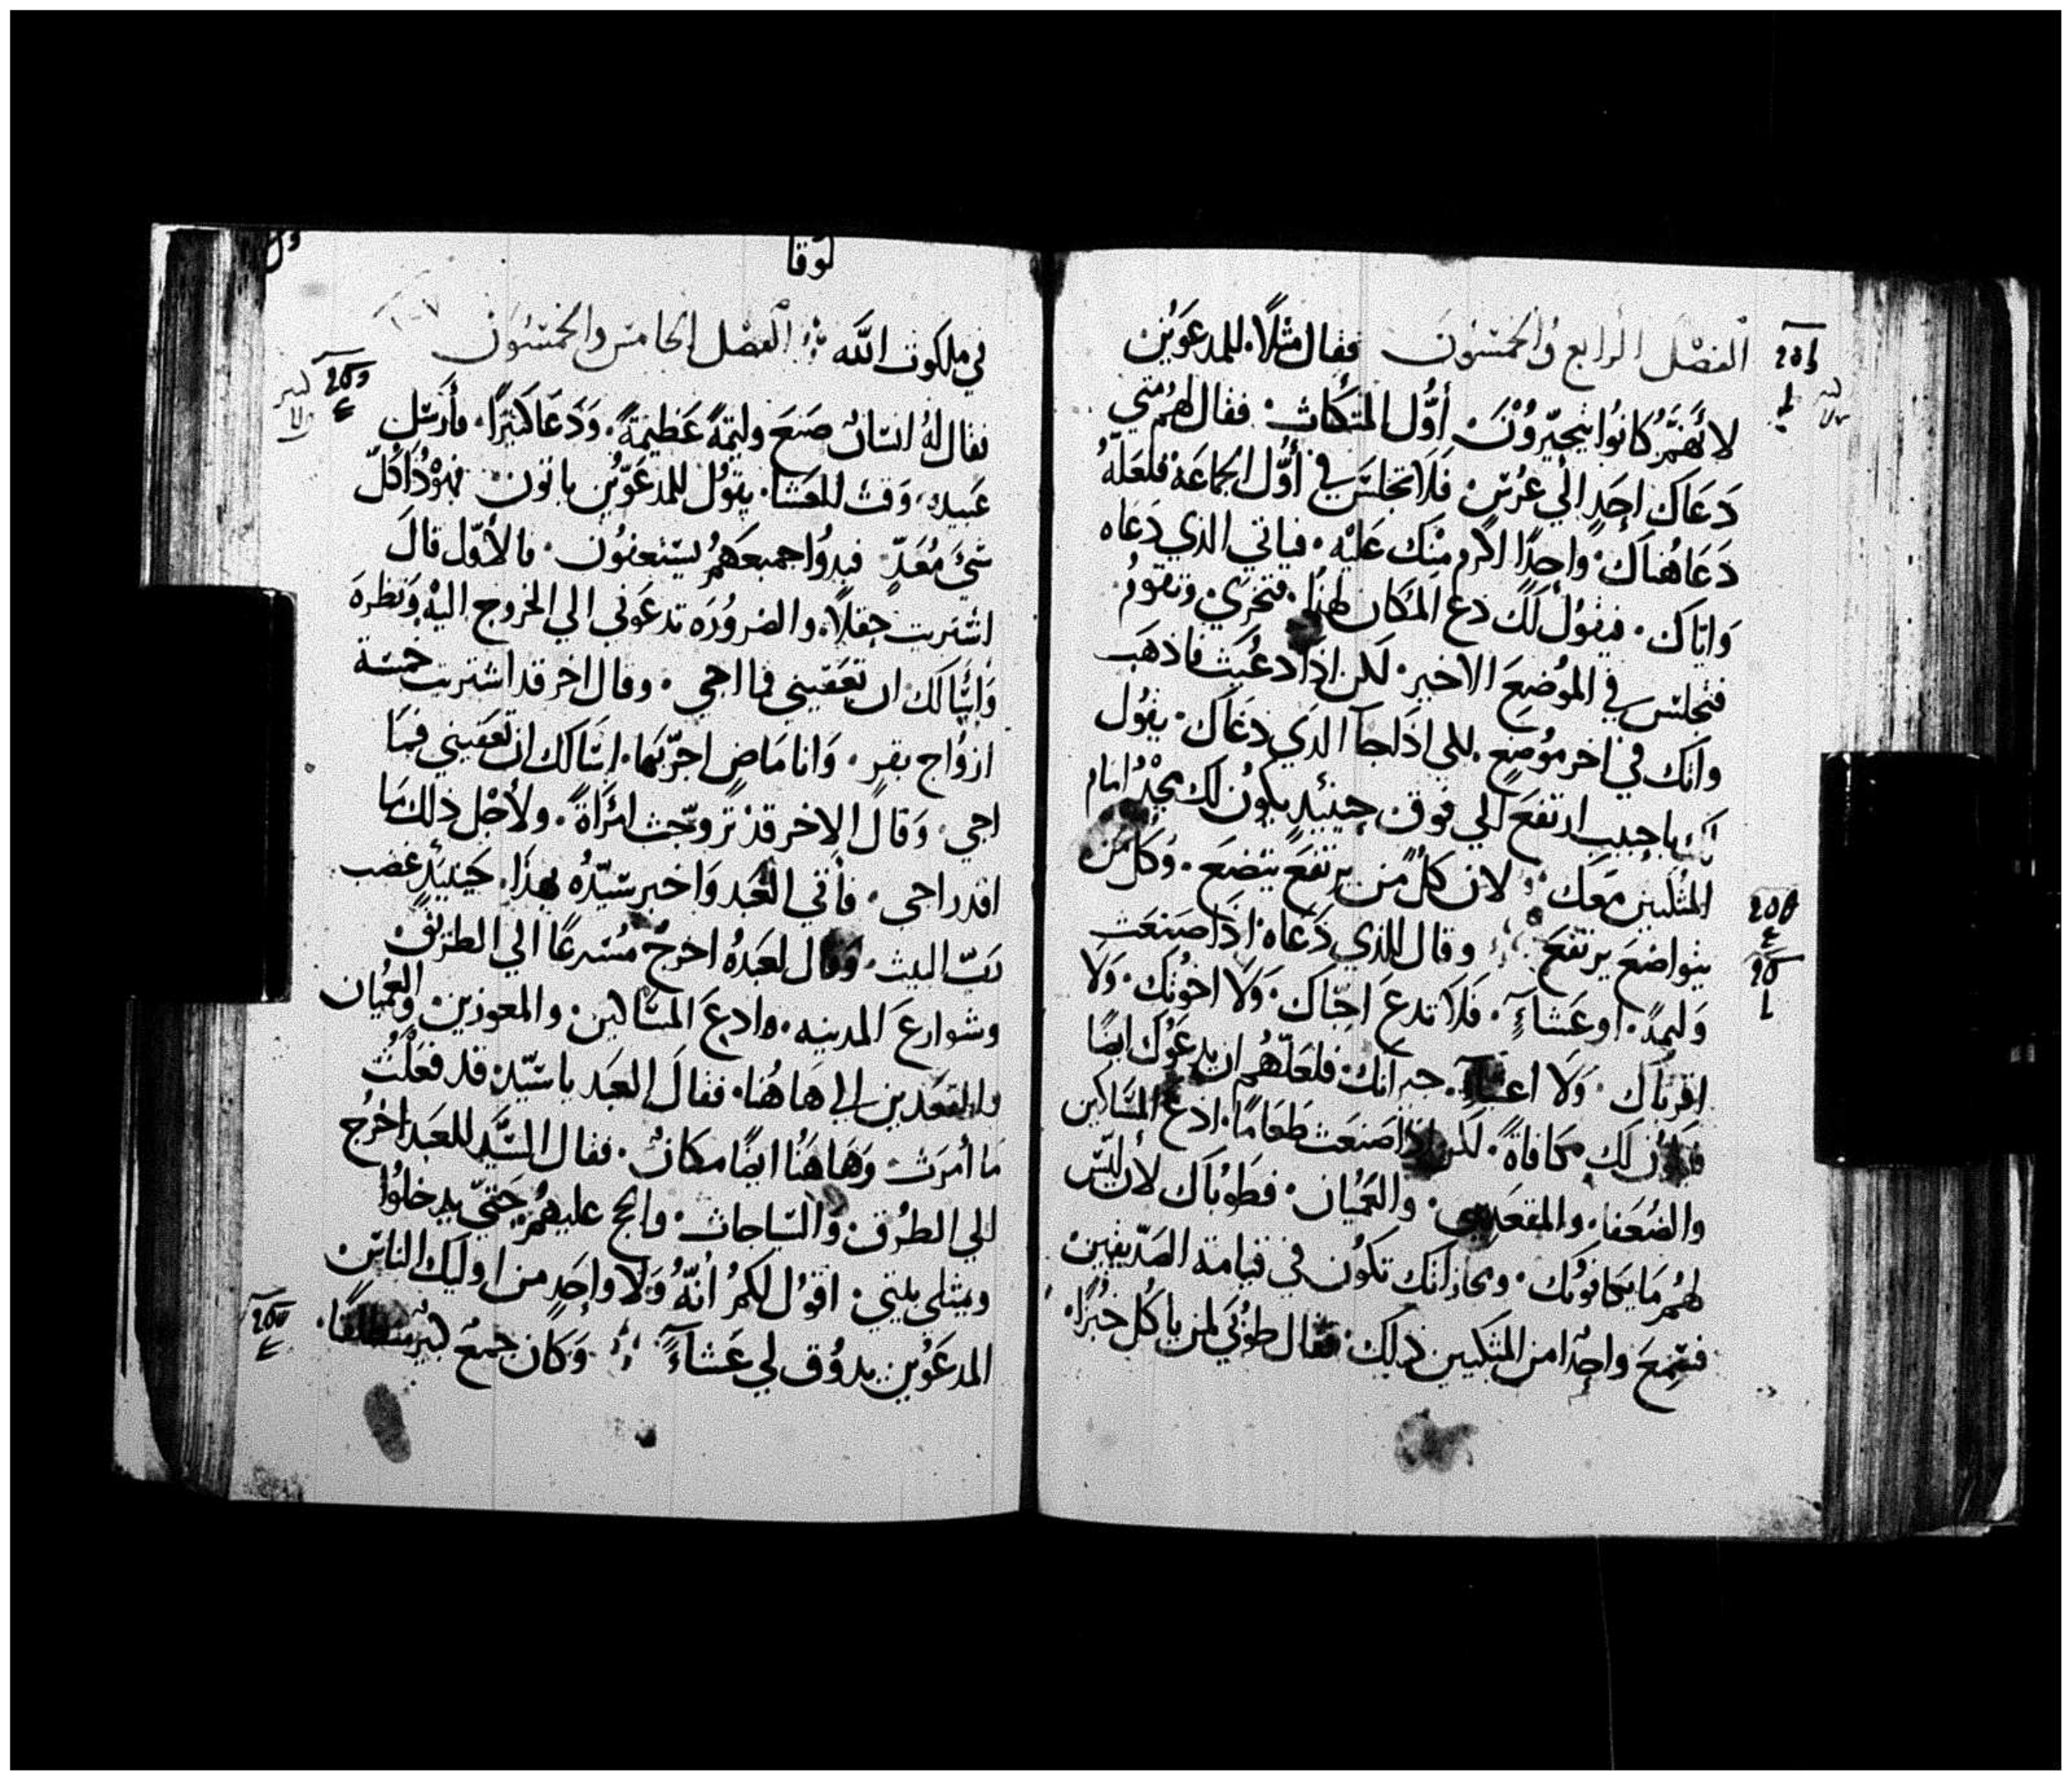 الفصل الرابع والخمسون فقال مثلاً للمدعوين
لأنهم كانوا يتخيرون أول المتكات فقال لهم متي
دعاك احد الي عرس فلا تجلس في أول الجماعة فلعله
دعا هناك واحدًا اكرم منك عليه فياتي الذي دعاه
واياك فيقول لك دع المكان لهذا فتخزي وتقوم
فتجلس في الموضع الاخير لكن اذا دعيت فاذهب
وانك في اخر موضع للي اذا جآ الذي دعاك يقول
لك يا حبيب ارتفع الي فوق حينيذٍ يكون لك مجد امام
المتكيين معك لان كل من يرتفع يتضع وكل من
يتواضع يرتفع وقال للذي دعاه اذا صنعت
وليمةً او عشاءٍ فلا تدع احباك ولا اخوتك ولا
اقرباك ولا اغنياء جيرانك فلعلهم ان يدعوك ايضًا
فتكون لك مكافاة لكن اذا صنعت طعامًا ادع المساكين
والضعفا والمقعدين والعميان فطوباك لأن ليس
لهم ما يكافونك ومجازاتك تكون في قيامة الصديقين
فسمع واحدًا من المتكيين ذلك فقال طوبي لمن ياكل خبزًا
لوقا
في ملكوت الله الفصل الخامس والخمسون
فقال له انسان صنع وليمةً عظيمةً ودعا كثيرًا فأرسل
عبيده وقت للعشا يقول للمدعوين ياتون فهوذا كل
شئ معدٍّ فبدوا جميعهم يستعفون فالأول قال
اشتريت حقلاً والضرورة تدعوني الي الخروج اليه ونظره
وأسالك ان تعفيني فما اجي وقال اخر قد اشتريت خمسة
ازواج بقر وانا ماض اجربها اسالك ان تعفيني فما
اجي وقال الاخر قد تزوجت امرأةً ولأجل ذلك ما
اقدر اجي فأتي العبد واخبر سيده بهذا حينيذٍ غضب
رب البيت وقال لعبده اخرج مسرعًا الي الطريق
وشوارع المدينه وادع المساكين والمعوزين والعميان
والمقعدين الي هاهنا فقال العبد يا سيد قد فعلت
ما أمرت وهاهنا ايضًا مكان فقال السيد للعبد اخرج
الي الطرق والسياجات والح عليهم حتي يدخلوا
ويمتلي بيتي اقول لكم أنه ولا واحد من اوليك الناس
المدعوين يدوق لي عشاءً وكان جمع كثير منطلقًا